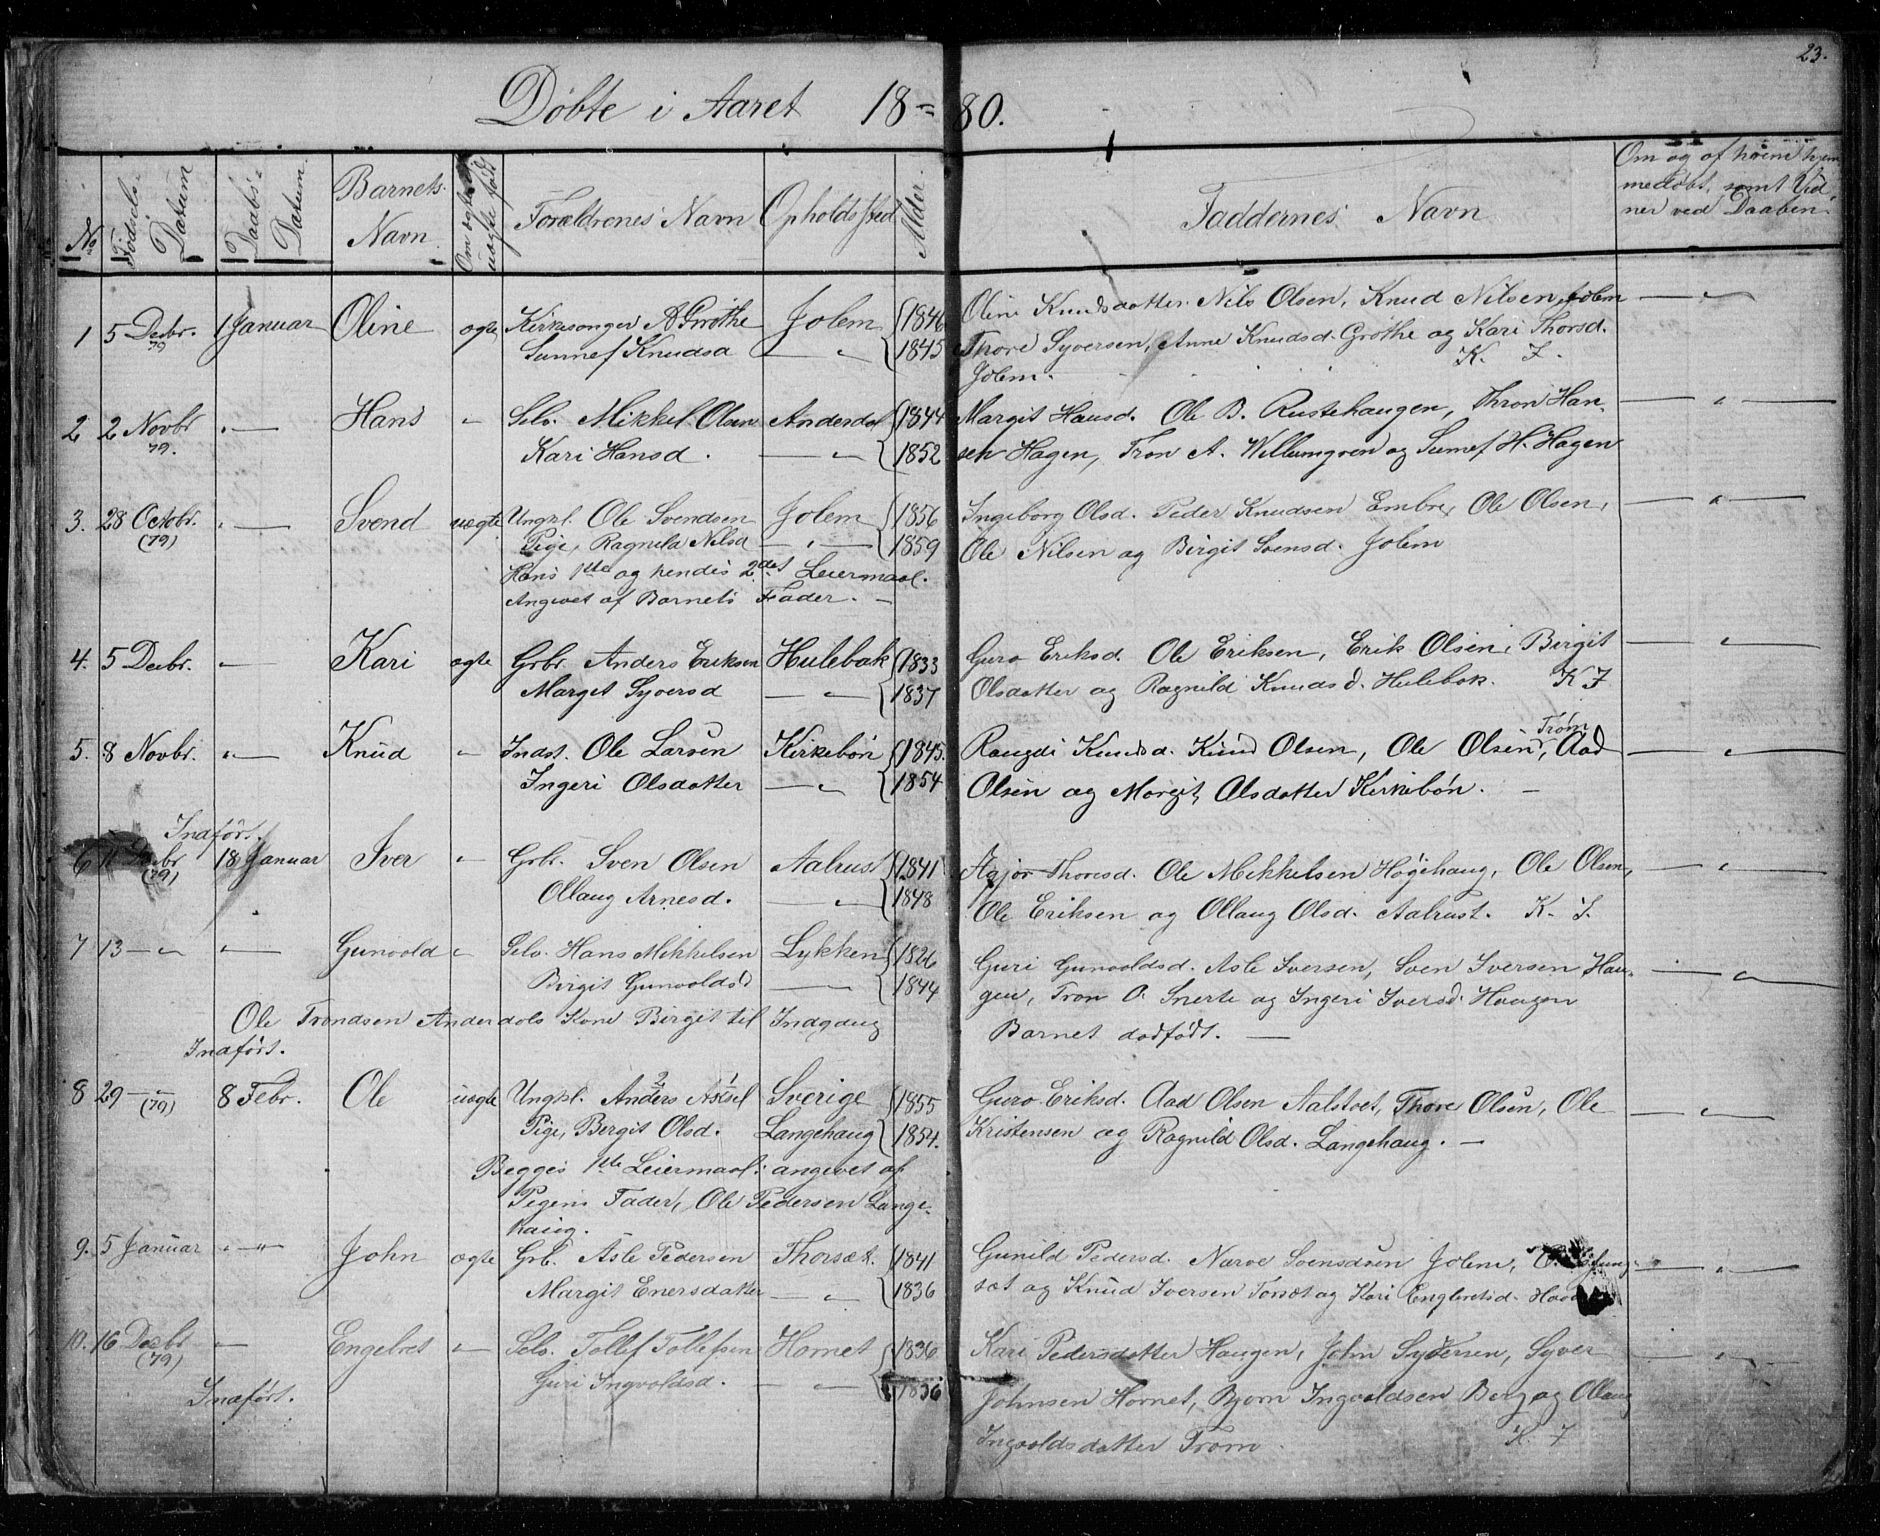 23.
Døbte i Aaret 18 = 80.
No
Fødsels- Datum
Daabs- Datum
Barnets Navn
Om ægte uægte fød
Forældrenes Navn
Opholdssted
Alder.
Faddernes Navn
Om og af hvem hjem
medøbt, samt Vid
ner ved Daaben
1 5 Decbr. 79 1 Januar Oline ægte Kirksonger A Grøthe Jolem 1846 Oline Knudsdatter. Nils Olsen, Knud Nilsen Jolem — „ —
Sunnef Knudsd — „ 1845 Thore Syversen, Anne Knudsd. Grøthe og Kari Thorsd.
Jolem. K. J.
2 2 Novbr 79. „ — Hans „ Selv. Mikkel Olsen Anderdal 1844 Margit Hansd. Ole B. Rustehaugen, Thron Han- — „ —
Kari Hansd. — „ 1852 sen Hagen, Tron A. Willumgren og Sunnef H. Hagen
3. 28 Octobr. (79) „ — Svend uægte Ungkl. Ole Svendsen Jolem 1856 Ingeborg Olsd. Peder Knudsen Embre, Ole Olsen, — „ —
Pige, Ragnild Nilsd — „ — 1859 Ole Nilsen og Birgit Svensd. Jolem
Hans 1ste og hendes 2det Leiermaal.
Angivet af Barnets Fader. —
4. 5 Decbr. „ — Kari ægte Grbr. Anders Eriksen Hulebak 1833 Guro Eriksd. Ole Eriksen, Erik Olsen, Birgit — „ —
Marget Syversd — „ 1837 Olsdatter og Ragnild Knudsd. Hulebak. K J
5. 8 Novbr. „ — Knud „ Indst. Ole Larsen Kirkebøn 1845. Rangdi Knudsd. Knud Olsen, Ole Olsen Trøm, Aad — „ —
Ingeri Olsdatter — „ 1854 Olsen og Margit Olsdatter Kirkebøn. —
Indført.
6 Decbr (79) 18 Januar Iver „ Grbr. Sven Olsen Aalrust 1841 Asjør Thoresd. Ole Mikkelsen Høgehaug, Ole Olsen, — „ —
Ollaug Arnesd. — „ 1848 Ole Eriksen og Ollaug Olsd. Aalrust. K. J.
7 13 — „ „ — Gunvold „ Selv. Hans Mikkelsen Lykken 1826 Guri Gunvoldsd. Asle Iversen, Sven Iversen Hau- — „ —
Birgit Gunvoldsd — „ 1844 gen, Tron O. Snerte og Ingeri Iversd. Haugen
Ole Trondsen Anderdals Kone Birgit til Indgang Barnet dødfødt. —
Indført.
8 29 — „ (79) 8 Febr. Ole uægte Ungkl. Anders 2 Aksel 1 Sverige 1855 Guro Eriksd. Aad Olsen Aalstvet, Thore Olsen, Ole — „ —
Pige, Bergit Olsd. Langehaug 1854. Kristensen og Ragnild Olsd. Langehaug. —
Begges 1ste Leiermaal: angivet af
Pigens Fader, Ole Pedersen Lange-
haug.
9. 5 Januar „ — „ John ægte Grb. Asle Pedersen Thorsæt. 1841 Gunild Pedersd. Narve Svensdsen Jolem, — „ —
Margit Enersdatter — „ 1836 sæt og Knud Iversen Torsæt og Kari Engbretsd.
10. 16 Decbr (79) „ — Engebret „ Selv. Tollef Tollefsen Hornet 1836 Kari Pedersdatter Haugen, John Syversen, Syver — „ —
Guri Ingvoldsd. — „ 1836 Johnsen Hornet, Bjørn Ingvoldsen Berg og Ollaug
Indført. Ingvoldsdatter Trøm. K J